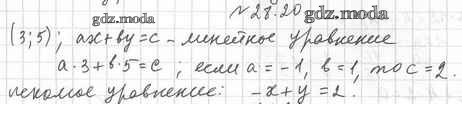 № 28.20 gdz.moza
gdz.moza
(3;5); ax+by=c - линейное уравнение
a·3+b·5=c; если a=-1, b=1, то c=2.
искомое уравнение: -x+y=2.
gdz.moza